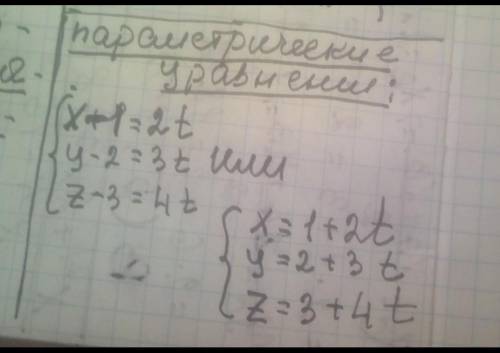 параметрические
уравнения:
x+1=2t
y-2=3t или
z-3=4t
x=1+2t
y=2+3t
z=3+4t